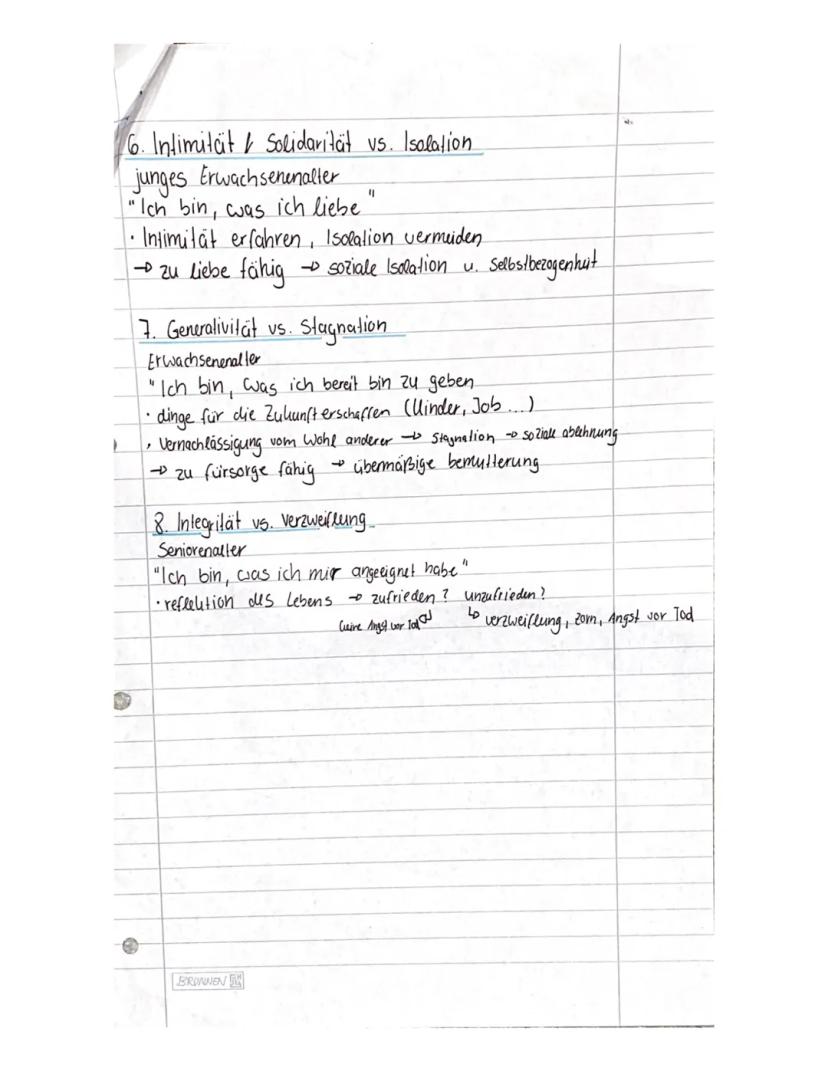 6. Intimität & Solidarität vs. Isolation
junges Erwachsenenalter
"Ich bin, was ich liebe"
· Intimität erfahren, Isolation vermeiden
→ zu liebe fähig → soziale Isolation u. Selbstbezogenheit
7. Generativität vs. Stagnation
Erwachsenenalter
"Ich bin, was ich bereit bin zu geben
· dinge für die Zukunft erschaffen (Kinder, Job ...)
· Vernachlässigung vom Wohl anderer → Stagnation → soziale ablehnung
→ zu fürsorge fähig → übermäßige bemutterung
8. Integrität vs. Verzweiflung
Seniorenalter
"Ich bin, was ich mir angeeignet habe"
· reflektion des Lebens → zufrieden? unzufrieden?
keine Angst vor Tod ↲ ↳ verzweiflung, zorn, Angst vor Tod
BRUNNEN